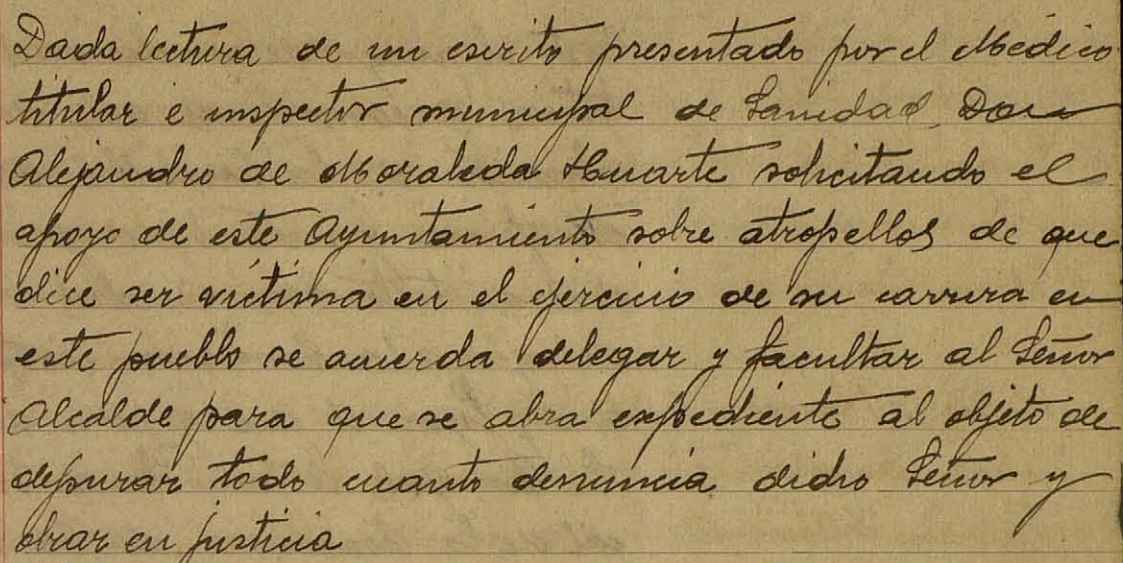 Dada lectura de un escrito presentado por el Médico
titular e inspector municipal de Sanidad Don
Alejandro de Moraleda Huarte solicitando el
apoyo de este Ayuntamiento sobre atropellos de que
dice ser víctima en el ejercicio de su carrera en
este pueblo se acuerda delegar y facultar al Señor
Alcalde para que se abra expediente al objeto de
depurar todo cuanto denuncia dicho Señor y
obrar en justicia